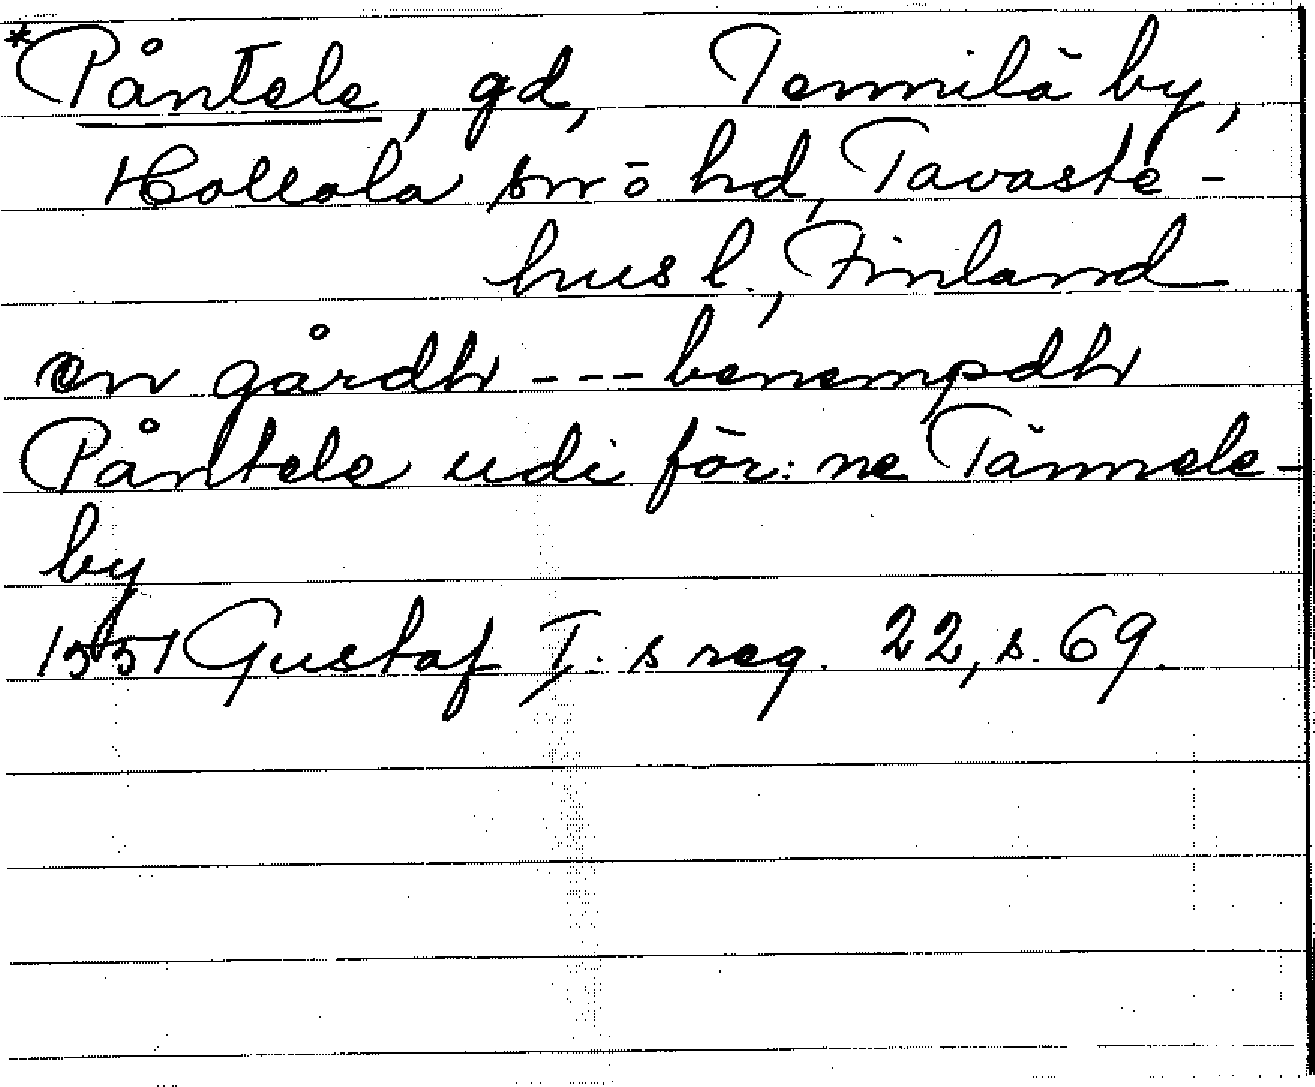 *Påntele, gd, Tennilä by,
Hollola sn o hd, Tavaste-
hus l., Finland
en gårdh --- benempdh
Påntele udi för:ne Tännele-
by
1551 Gustaf I:s reg. 22, s. 69.